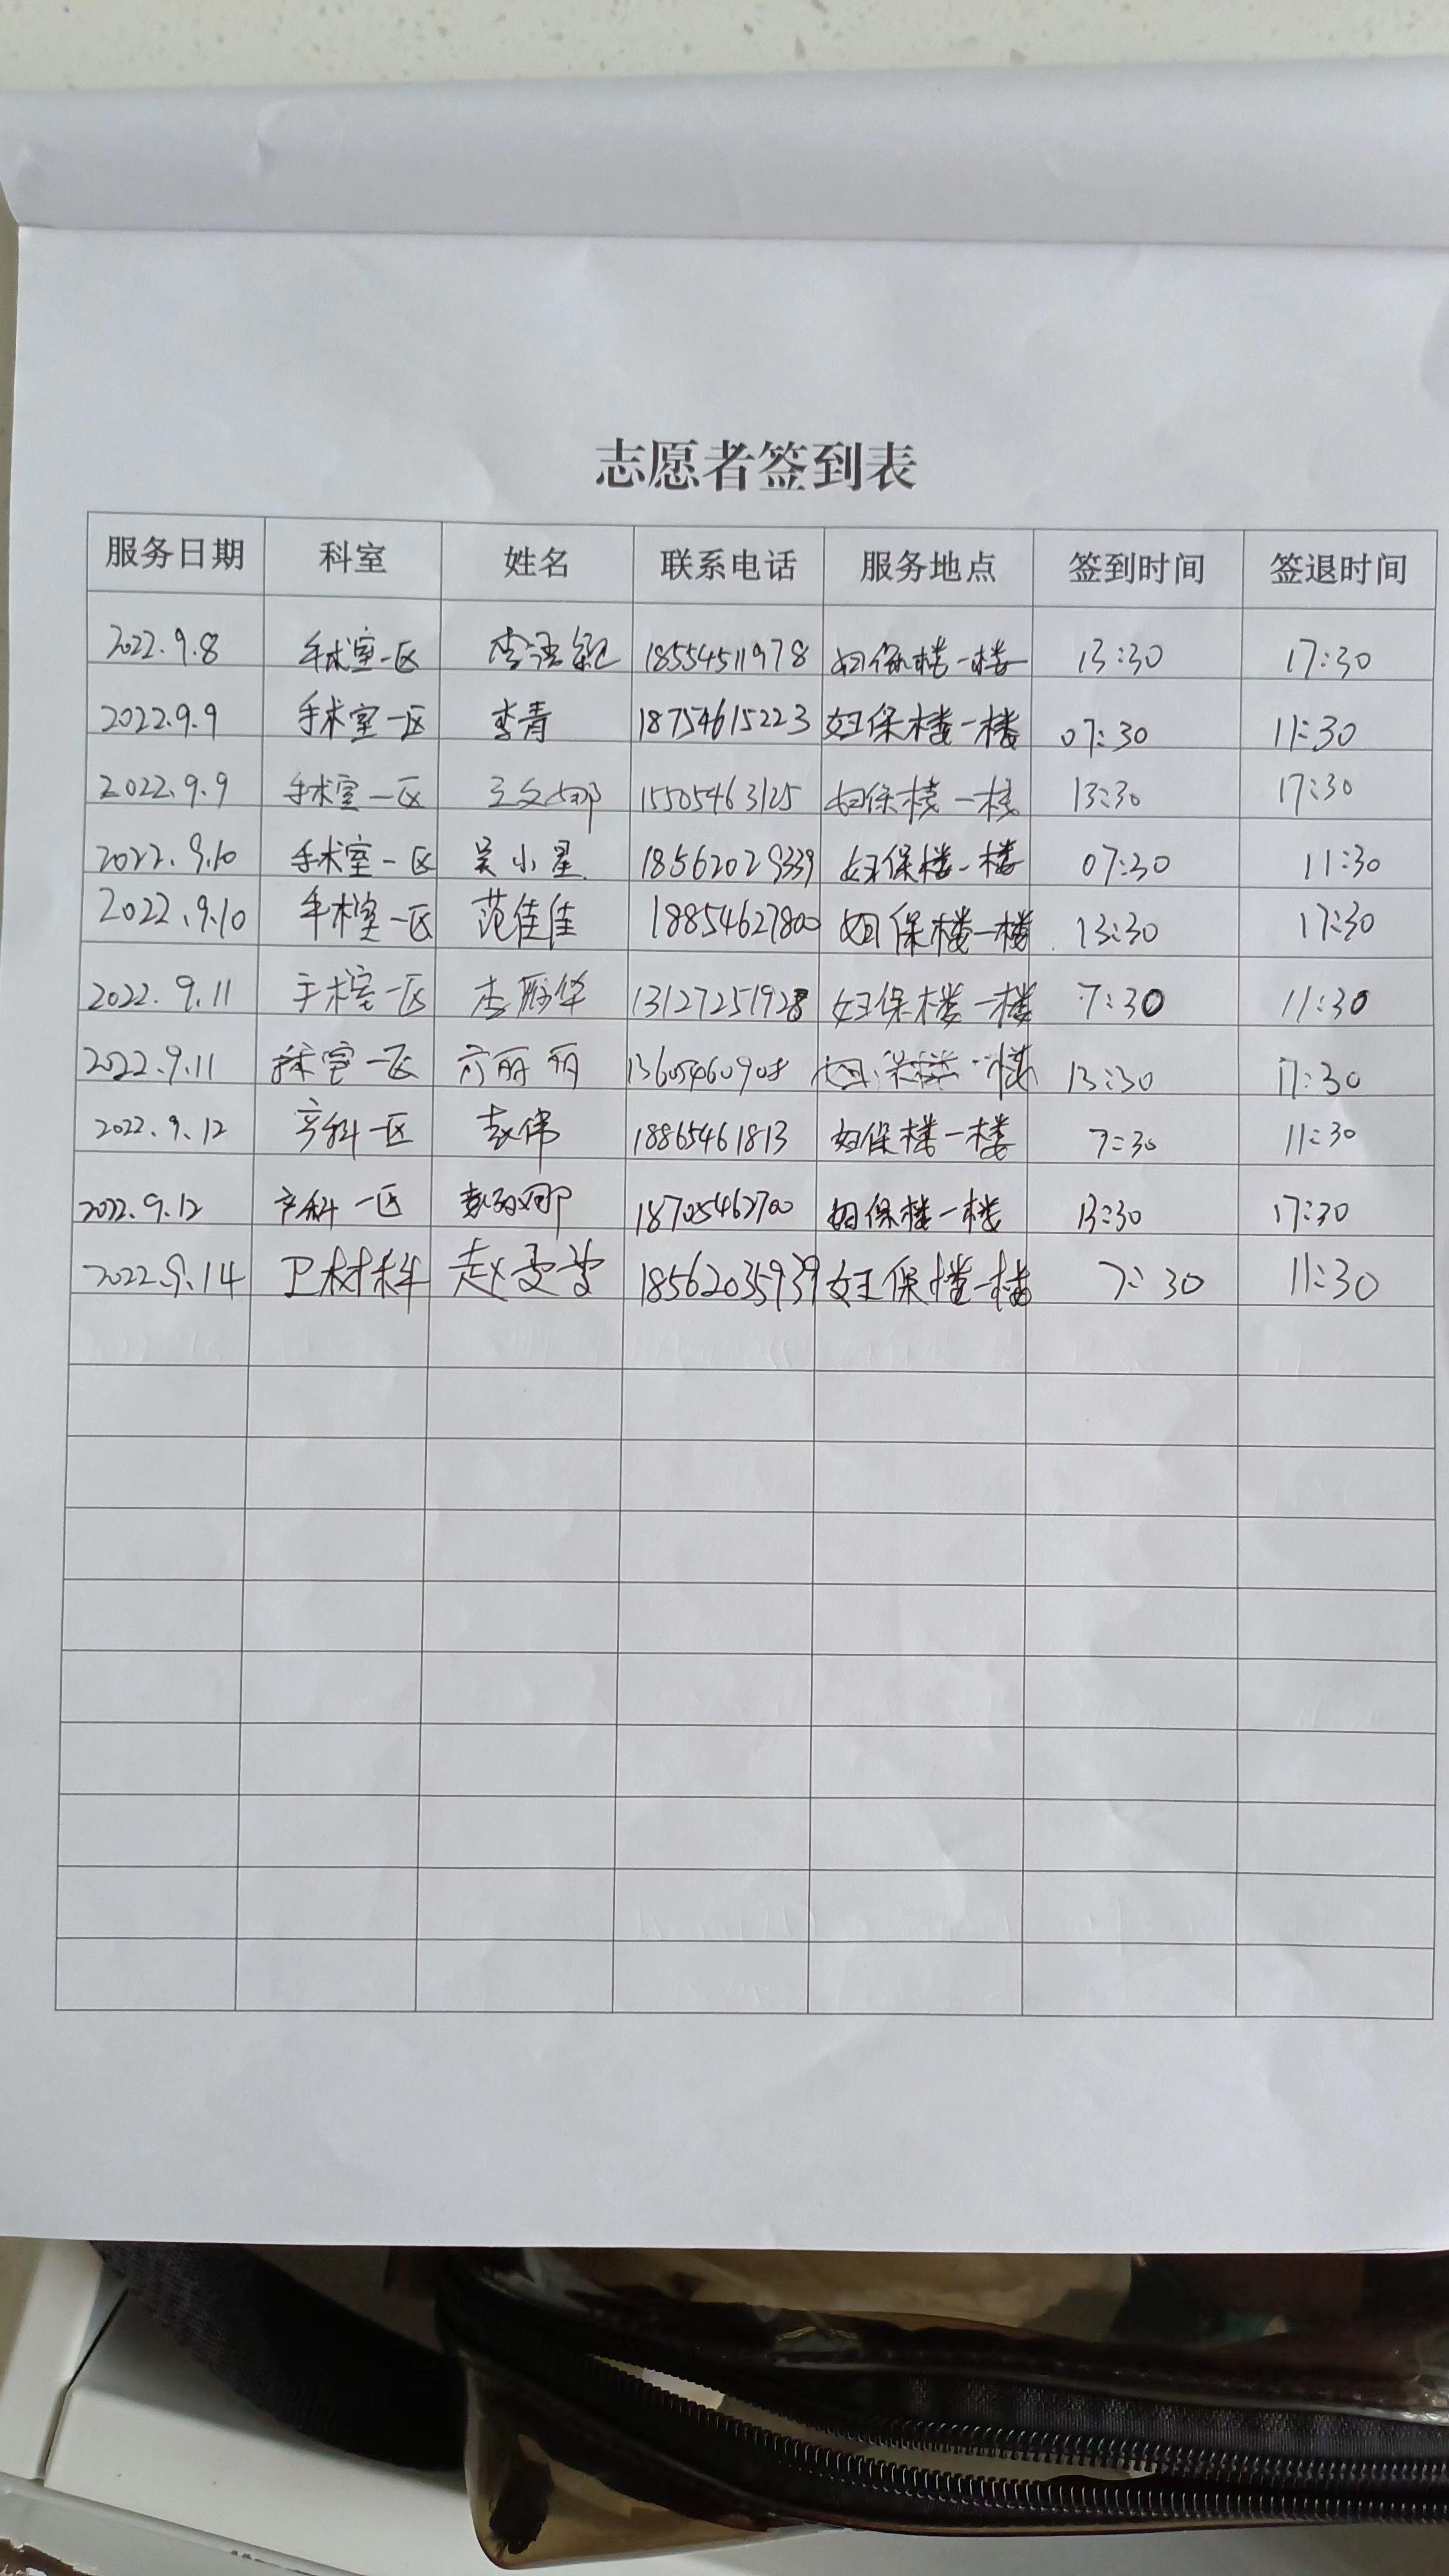 志愿者签到表
服务日期 科室 姓名 联系电话 服务地点 签到时间 签退时间
2022.9.8 手术室一区 18554511978 妇保楼一楼 13:30 17:30
2022.9.9 手术室一区 李青 18754615223 妇保楼一楼 07:30 11:30
2022.9.9 手术室一区 王文娜 15505463125 妇保楼一楼 13:30 17:30
2022.9.10 手术室一区 吴小星 18562029339 妇保楼一楼 07:30 11:30
2022.9.10 手术室一区 范佳佳 18854627800 妇保楼一楼 13:30 17:30
2022.9.11 手术室一区 13127251928 妇保楼一楼 7:30 11:30
2022.9.11 手术室一区 13605460908 妇保楼一楼 13:30 17:30
2022.9.12 产科一区 赵伟 18865461813 妇保楼一楼 7:30 11:30
2022.9.12 产科一区 18705462700 妇保楼一楼 13:30 17:30
2022.9.14 卫材科 18562035939 妇保楼一楼 7:30 11:30